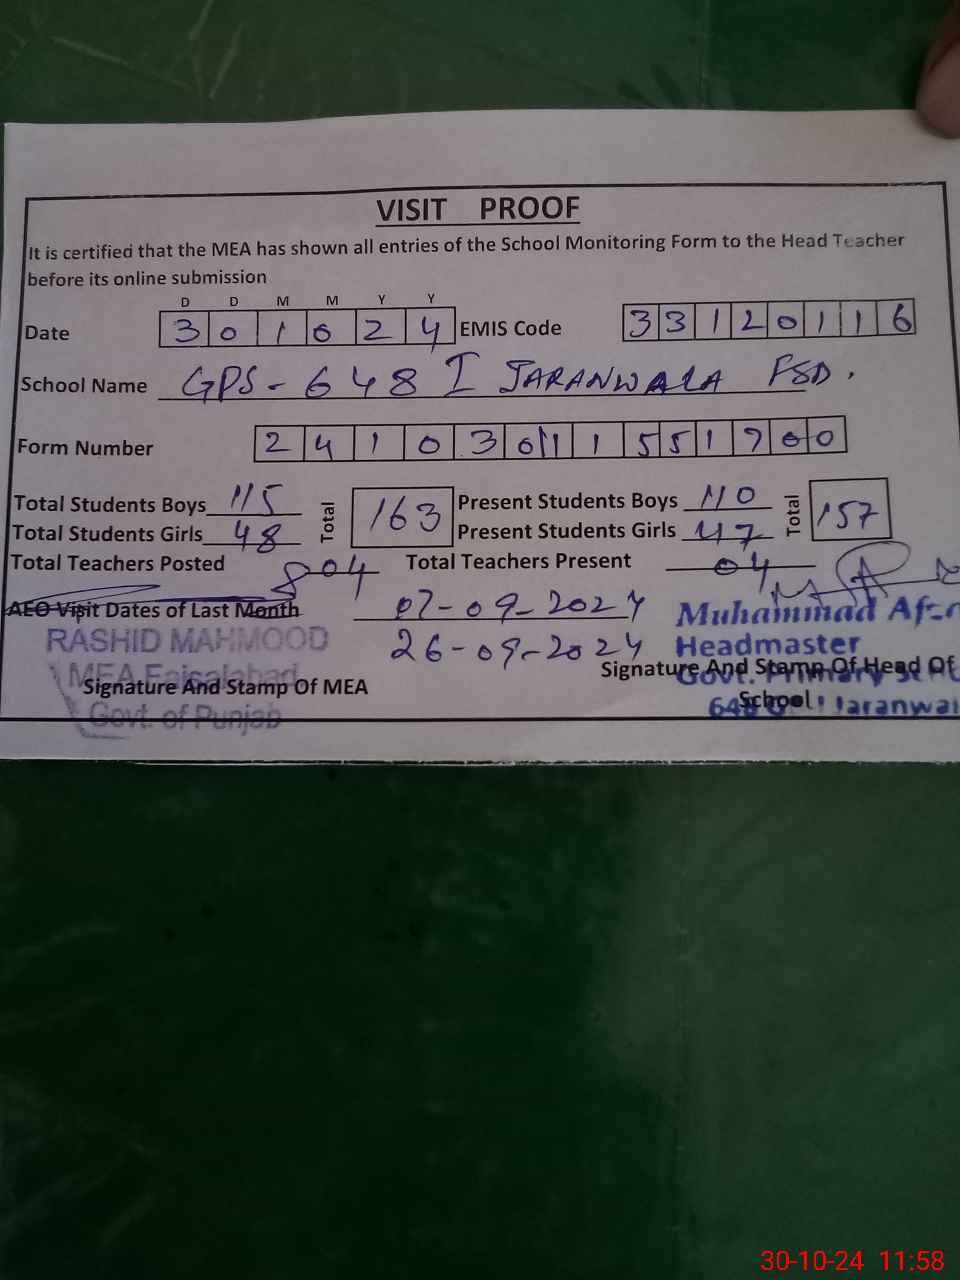 VISIT PROOF
It is certified that the MEA has shown all entries of the School Monitoring Form to the Head Teacher
before its online submission
D D M M Y Y
Date 3 0 1 0 2 4 EMIS Code 3 3 1 2 0 1 1 6
School Name GPS-648 I JARANWALA FSD.
Form Number 2 4 1 0 3 0 1 1 5 5 1 9 0 0
Total Students Boys 115 Total 163 Present Students Boys 110 Total 157
Total Students Girls 48 Present Students Girls 47
Total Teachers Posted 04 Total Teachers Present 04
AEO Visit Dates of Last Month 07-09-2024
26-09-2024
RASHID MAHMOOD
MEA Faisalabad
Govt. of Punjab
Signature And Stamp Of MEA
Muhammad
Headmaster
Govt. Primary
648 Jaranwal
Signature And Stamp Of Head Of
School
30-10-24 11:58